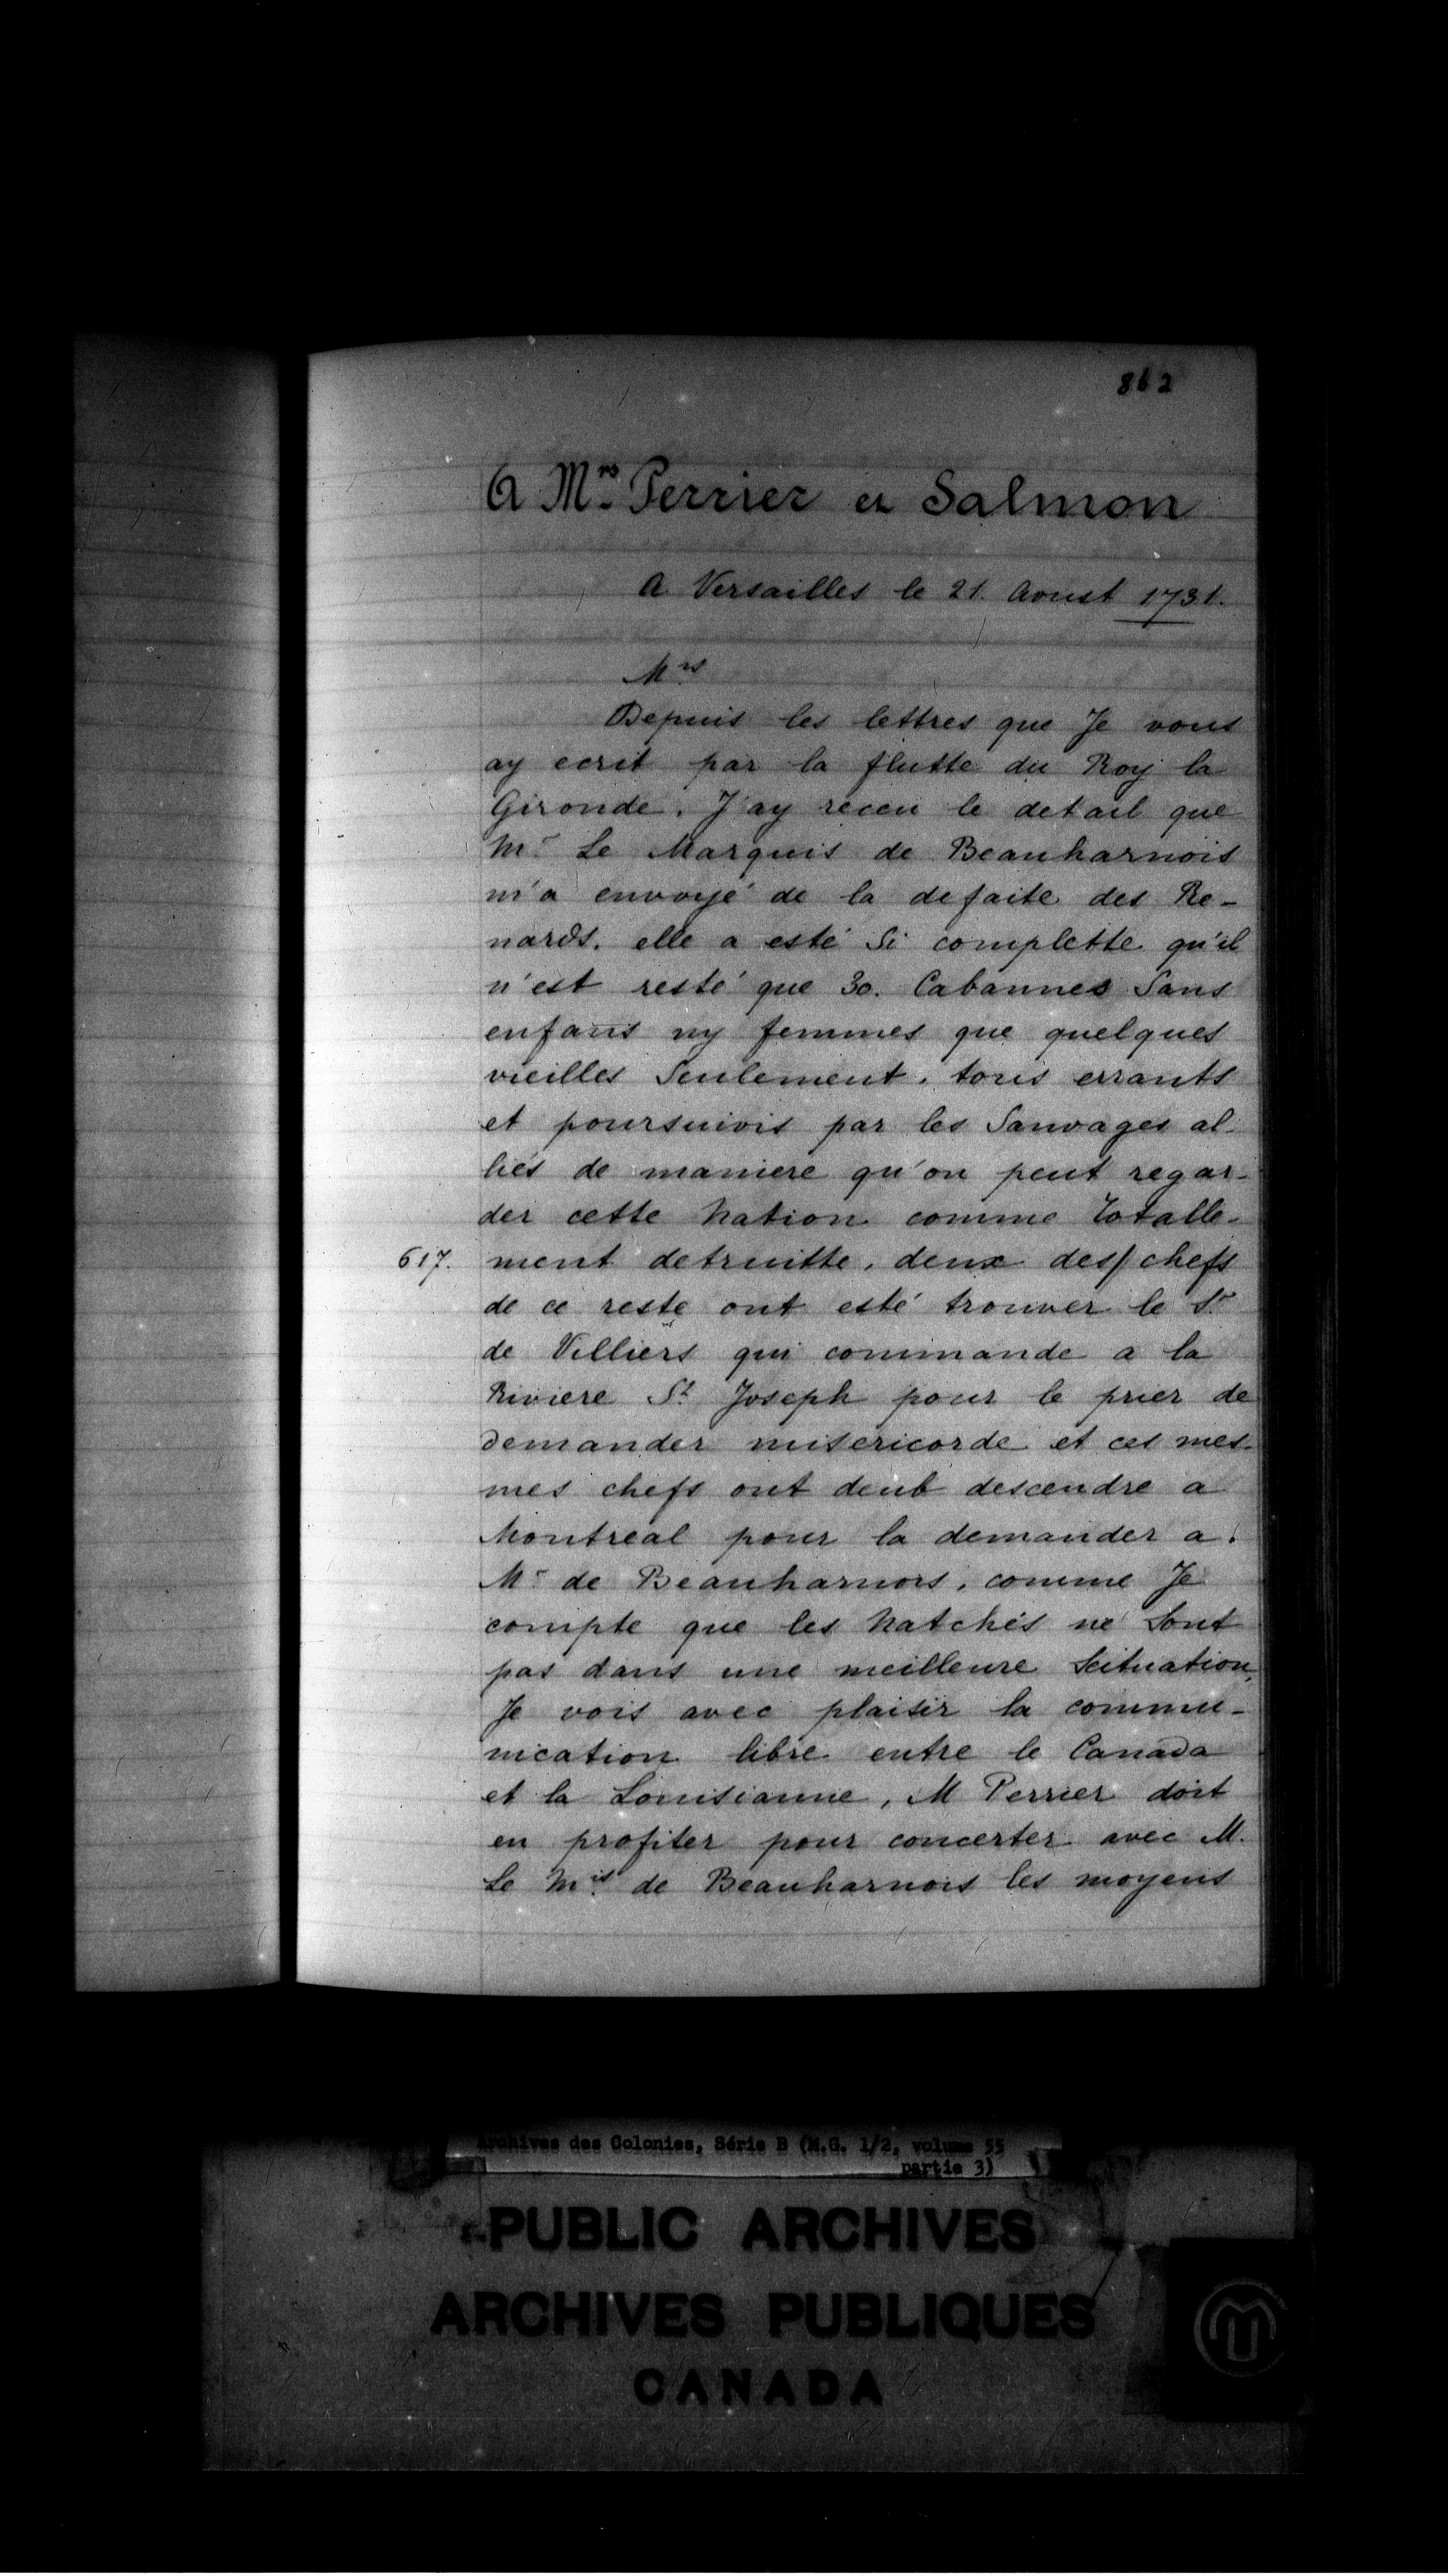 862
A Mrs Perrier et Salmon
A Versailles le 21. Aoust 1731.
Mrs
Depuis les lettres que Je vous
ay ecrit par la flutte du Roy la
Gironde. J'ay receu le detail que
Mr. Le Marquis de Beauharnois
m'a envoyé de la defaite des Re-
nards. elle a esté Si complette qu'il
n'est resté que 30. Cabannes Sans
enfans ny femmes que quelques
vieilles Seulement, tous errants
et poursuivis par les Sauvages al-
liés de maniere qu'on peut regar-
der cette Nation comme totalle-
617. ment detruitte, deux des/ chefs
de ce reste ont esté trouver le Sr
de Villiers qui commande a la
Riviere St Joseph pour le prier de
demander misericorde et ces mes-
mes chefs ont deub descendre a
Montreal pour la demander a
Mr de Beauharnois, comme Je
compte que les Natchés ne Sont
pas dans une meilleure Scituation,
Je vois avec plaisir la commu-
nication libre entre le Canada
et la Louisianne, M Perrier doit
en profiter pour concerter avec M.
Le Mis de Beauharnois les moyens
Archives des Colonies, Série B (M.G. 1/2, volume 55
partie 3)
PUBLIC ARCHIVES
ARCHIVES PUBLIQUES
CANADA